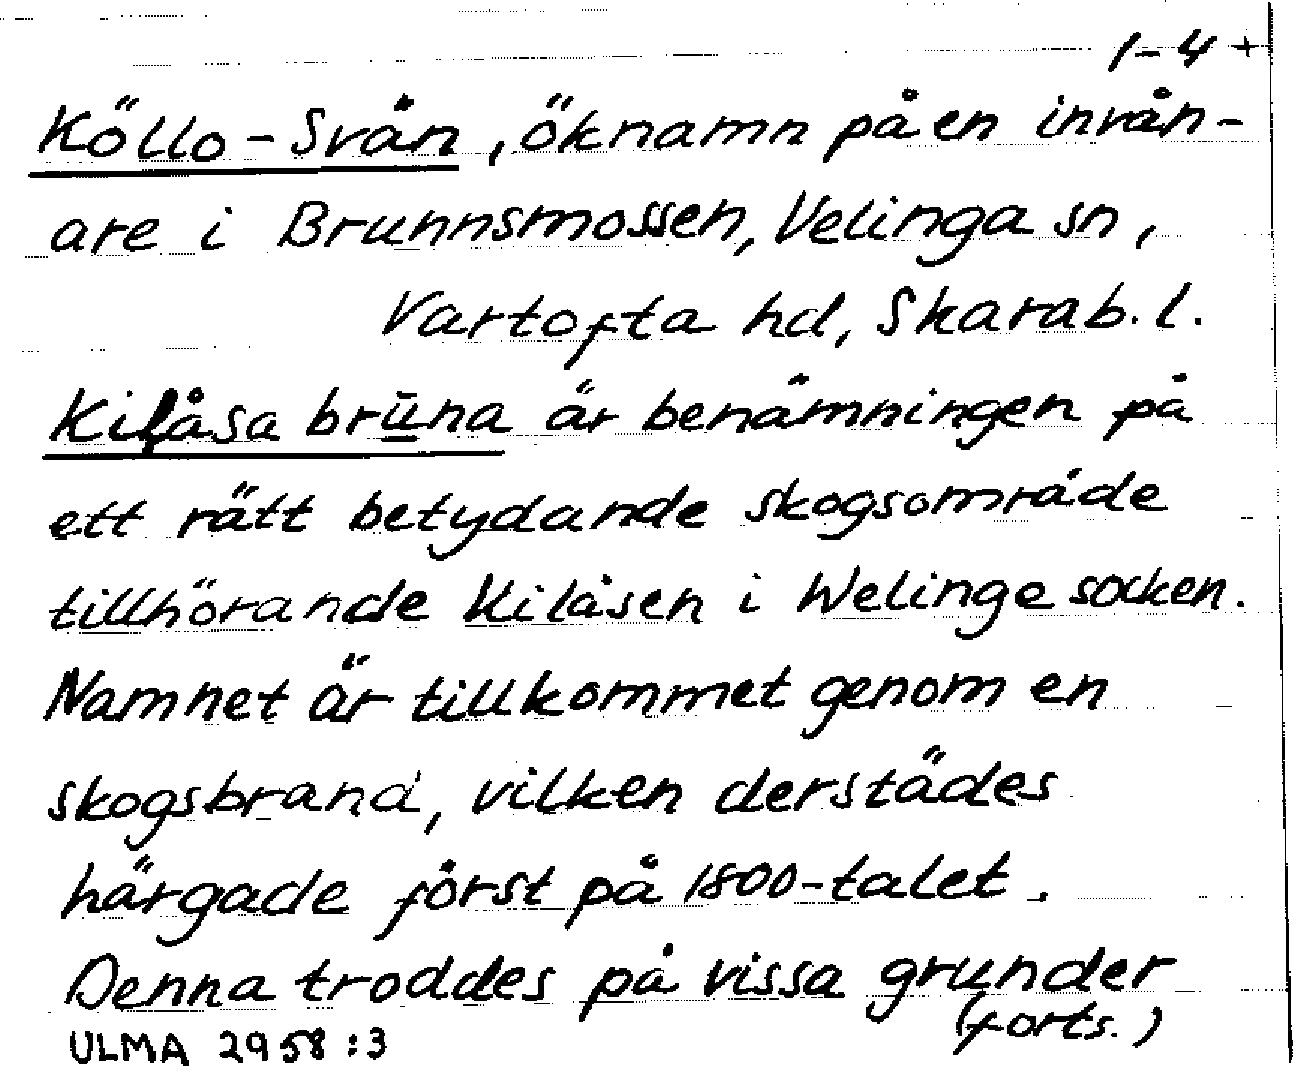 1-4 +
Köllo-Svån, öknamn på en invån-
are i Brunnsmossen, Velinga sn,
Vartofta hd, Skarab. l.
Kilåsa brūna är benämningen på
ett rätt betydande skogsområde
tillhörande Kilåsen i Welinge socken.
Namnet är tillkommet genom en
skogsbrand, vilken derstädes
härgade först på 1800-talet.
Denna troddes på vissa grunder
(forts.)
ULMA 2958:3